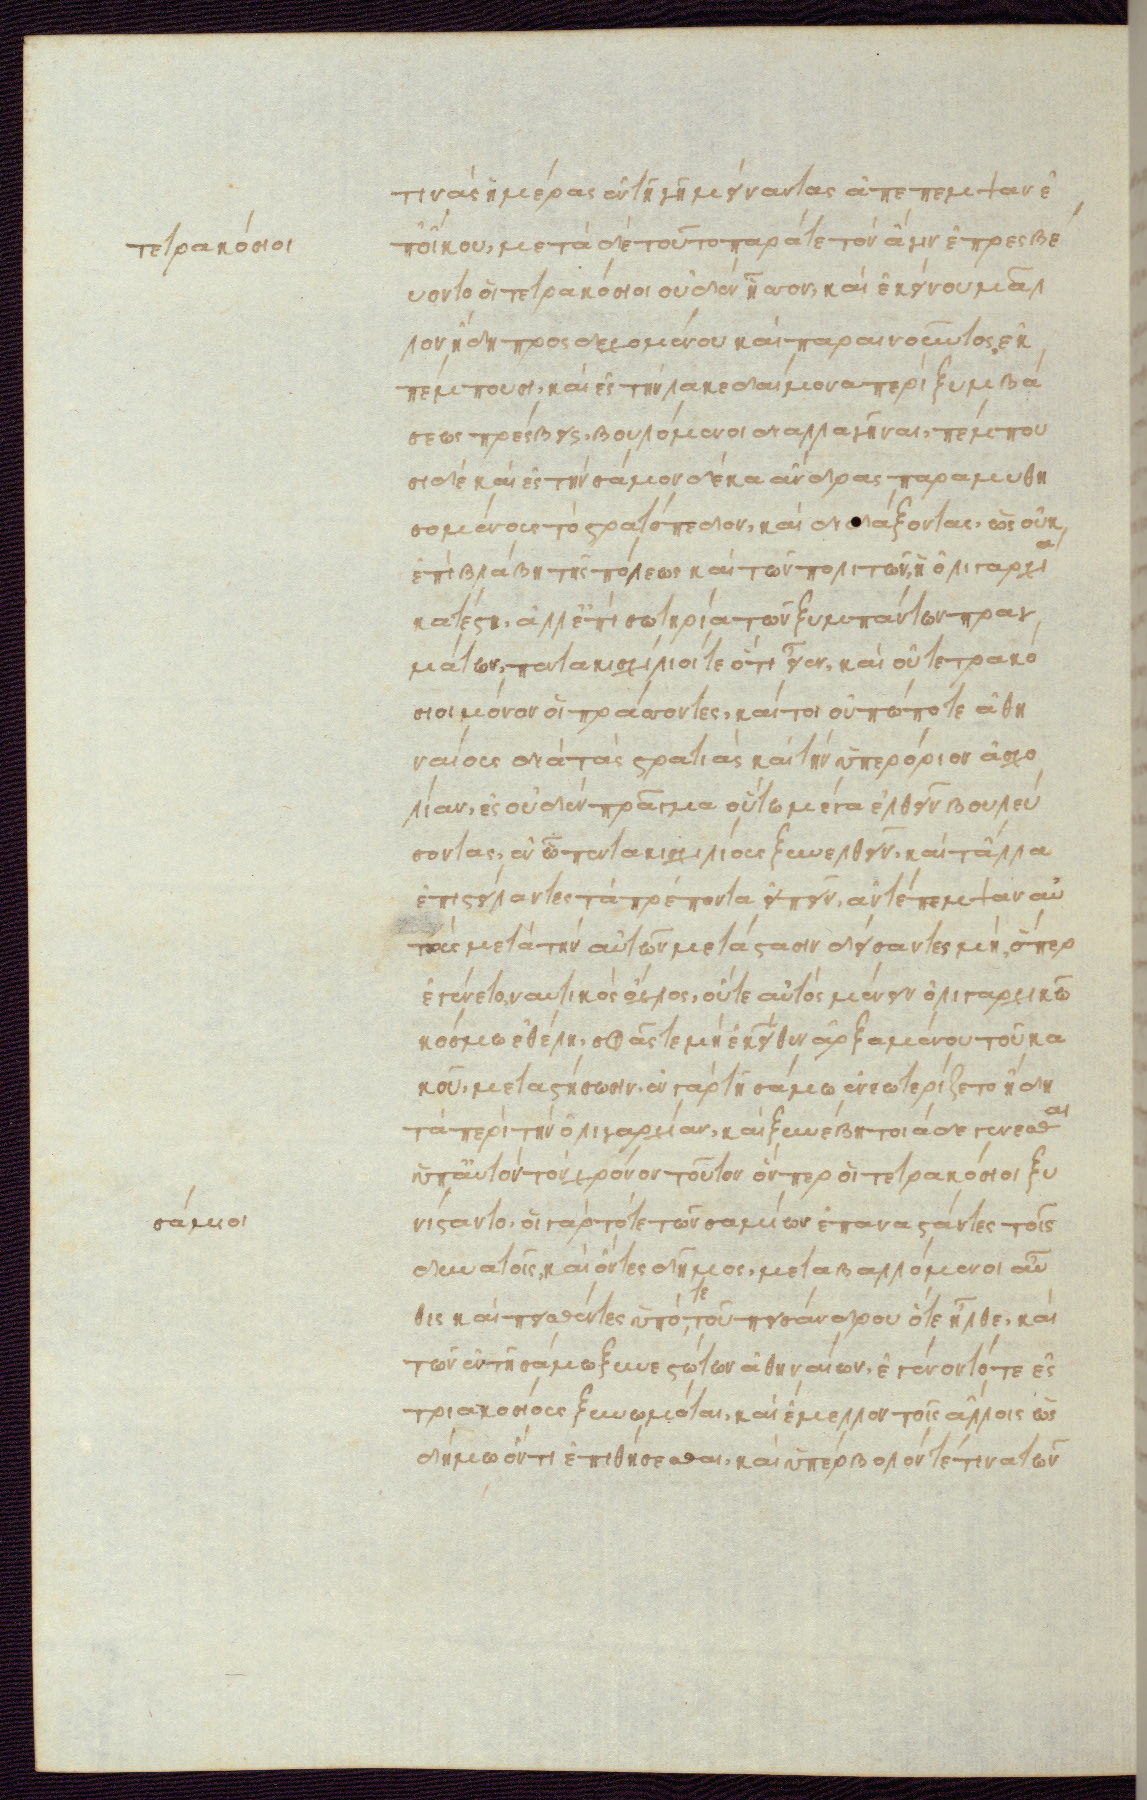 τινὰς ἡμέρας ἐν τῇ γῇ μείναντας ἀπέπεμψαν ἐ
τετρακόσιοι
π' οἴκου, μετὰ δὲ τοῦτο παρά τε τὸν ἄγιν ἐπρεσβέ
υοντο οἱ τετρακόσιοι οὐδὲν ἧσσον, καὶ ἐκείνου μᾶλ
λον ἤδη προσδεχομένου καὶ παραινοῦντος, ἐκ
πέμπουσι, καὶ ἐς τὴν λακεδαίμονα περὶ ξυμβά
σεως πρέσβεις, βουλόμενοι διαλλαγῆναι, πέμπου
σι δὲ καὶ ἐς τὴν σάμον δέκα ἄνδρας παραμυθη
σομένους τὸ στρατόπεδον, καὶ διδάξοντας, ὡς οὐκ
ἐπὶ βλάβῃ τῆς πόλεως καὶ τῶν πολιτῶν, ἡ ὀλιγαρχία
κατέστη, ἀλλ' ἐπὶ σωτηρία τῶν ξυμπάντων πραγ
μάτων, πεντακισχίλιοί τε ὅτι εἶεν, καὶ οὐ τετρακό
σιοι μόνον οἱ πράσσοντες, καίτοι οὐ πώποτε ἀθη
ναίους διὰ τὰς στρατιὰς καὶ τὴν ὑπερόριον ἀσχο
λίαν, ἐς οὐδὲν πρᾶγμα οὕτω μέγα ἐλθεῖν βουλεύ
σοντας, ἐν ὧ πεντακισχιλίους ξυνελθεῖν, καὶ τἄλλα
ἐπιστείλαντες τὰ πρέποντα εἰπεῖν, ἀντέπεμψαν αὐ
τοὺς μετὰ τὴν αὐτῶν μετάστασιν δείσαντες μὴ, ὅπερ
ἐγένετο, ναυτικὸς ὄχλος, οὔτε αὐτὸς μένειν ὀλιγαρχικῶ
κόσμω ἐθέλη, σφᾶς τε μὴ ἐκεῖθεν ἀρξαμένου τοῦ κα
κοῦ, μεταστήσωσιν, ἐν γὰρ τῇ σάμω ἐνεωτερίζετο ἤδη
τὰ περὶ τὴν ὀλιγαρχίαν, καὶ ξυνέβη τοιάδε γενέσθαι
ὑπ' αὐτὸν τὸν χρόνον τοῦτον ὅνπερ οἱ τετρακόσιοι ξυ
σάμιοι
νίσταντο, οἱ γὰρ τότε τῶν σαμίων ἐπαναστάντες τοῖς
δυνατοῖς, καὶ ὄντες δῆμος, μεταβαλλόμενοι αὖ
θις καὶ πεισθέντες ὑπό τε τοῦ πεισάνδρου ὅτε ἦλθε, καὶ
τῶν ἐν τῇ σάμω ξυνεστώτων ἀθηναίων, ἐγένοντό τε ἐς
τριακοσίους ξυνωμόται, καὶ ἔμελλον τοῖς ἄλλοις ὡς
δήμω ὄντι ἐπιθήσεσθαι, καὶ ὑπέρβολόν τέ τινα τῶν